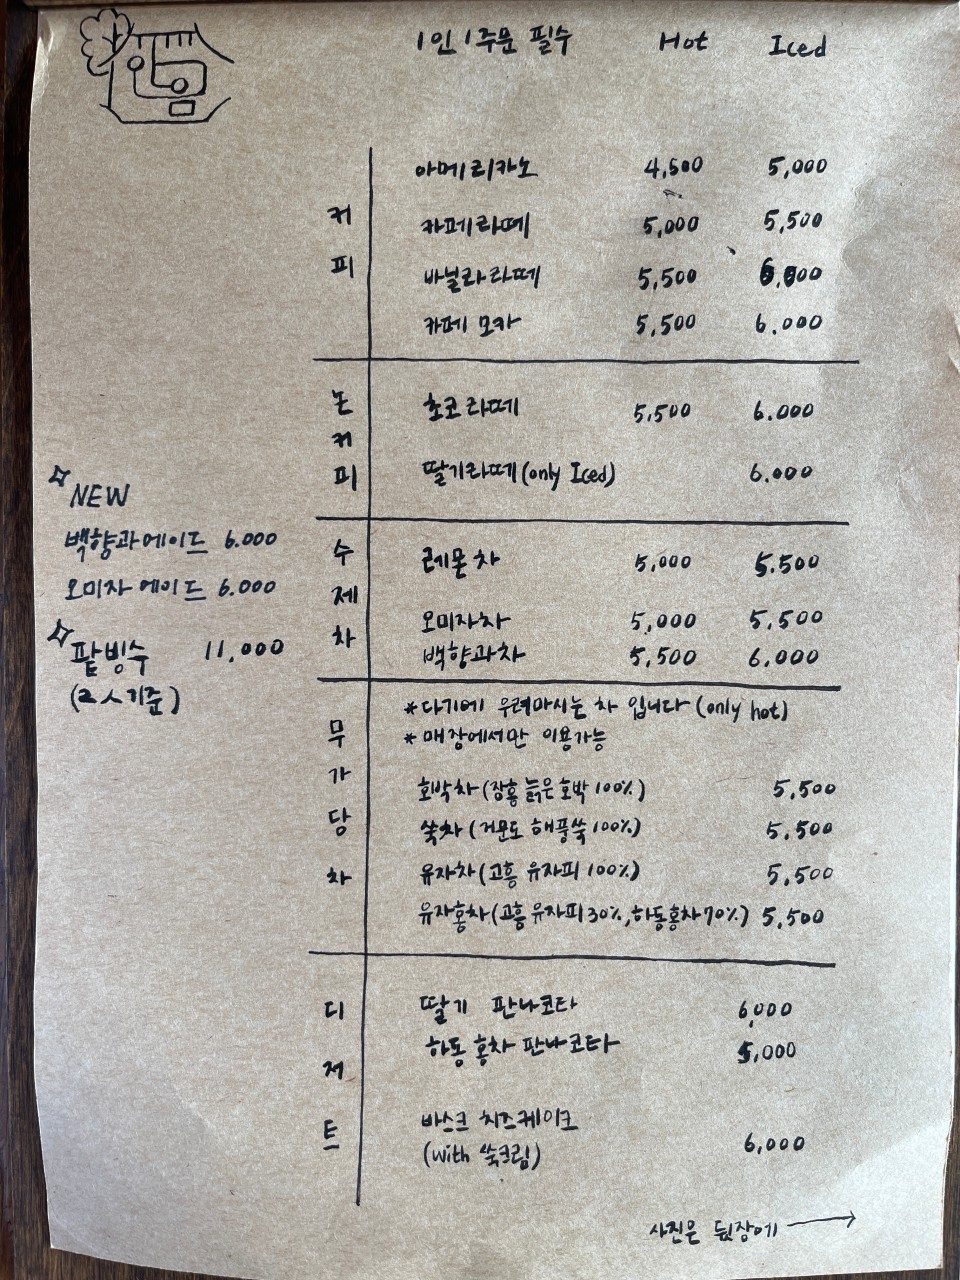 1인 1주문 필수 Hot Iced
커피
아메리카노 4,500 5,000
카페라떼 5,000 5,500
바닐라라떼 5,500 6,000
카페 모카 5,500 6.000
논커피
초코라떼 5,500 6.000
딸기라떼 (only Iced) 6.000
수제차
레몬차 5,000 5.500
오미자차 5,000 5,500
백향과차 5,500 6,000
무가당차
*다기에 우려마시는 차 입니다 (only hot)
*매장에서만 이용가능
호박차 (장흥 늙은 호박 100%) 5,500
쑥차 (거문도 해풍쑥 100%) 5,500
유자차 (고흥 유자피 100%) 5,500
유자홍차 (고흥 유자피 30%, 하동홍차 70%) 5,500
디저트
딸기 판나코타 6,000
하동 홍차 판나코타 5,000
바스크 치즈케이크
(with 쑥크림) 6,000
NEW
백향과에이드 6.000
오미자에이드 6.000
팥빙수 11,000
(2人기준)
사진은 뒷장에 →